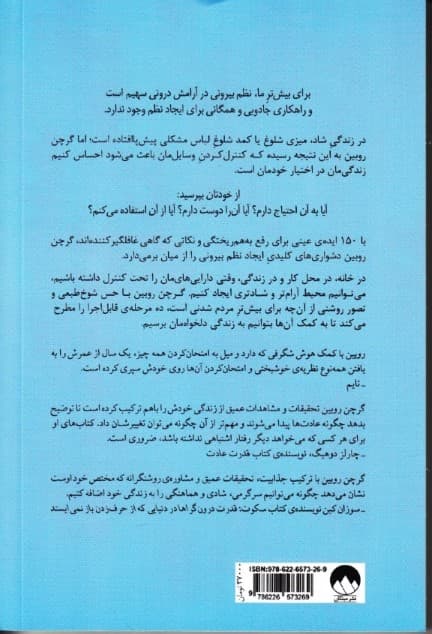 برای بیش‌تر ما، نظم بیرونی در آرامش درونی سهیم است
و راهکاری جادویی و همگانی برای ایجاد نظم وجود ندارد.
در زندگیِ شاد، میزی شلوغ یا کمد شلوغ لباس مشکلی پیش‌پاافتاده است؛ اما گرچن
روبین به این نتیجه رسیده که کنترل‌کردنِ وسایل‌مان باعث می‌شود احساس کنیم
زندگی‌مان در اختیار خودمان است.
از خودتان بپرسید:
آیا به آن احتیاج دارم؟ آیا آن‌را دوست دارم؟ آیا از آن استفاده می‌کنم؟
با ۱۵۰ ایده‌ی عینی برای رفع به‌هم‌ریختگی و نکاتی که گاهی غافلگیرکننده‌اند، گرچن
روبین دشواری‌های کلیدیِ ایجاد نظم بیرونی را از میان برمی‌دارد.
در خانه، در محل کار و در زندگی، وقتی دارایی‌های‌مان را تحت کنترل داشته باشیم،
می‌توانیم محیط آرام‌تر و شادتری ایجاد کنیم. گرچن روبین با حس شوخ‌طبعی و
تصور روشنی از آن‌چه برای بیش‌تر مردم شدنی است، ده مرحله‌ی قابل‌اجرا را مطرح
می‌کند تا به کمک آن‌ها بتوانیم به زندگی دلخواه‌مان برسیم.
روبین با کمک هوش شگرفی که دارد و میل به امتحان‌کردن همه چیز، یک سال از عمرش را به
یافتن همه‌نوع نظریه‌ی خوشبختی و امتحان‌کردن آن‌ها روی خودش سپری کرده است.
ـ تایم
گرچن روبین تحقیقات و مشاهدات عمیق از زندگی خودش را باهم ترکیب کرده است تا توضیح
بدهد چگونه عادت‌ها پیدا می‌شوند و مهم‌تر از آن چگونه می‌توان تغییرشان داد. کتاب‌های او
برای هر کسی که می‌خواهد دیگر رفتار اشتباهی نداشته باشد، ضروری است.
ـ چارلز دوهیگ، نویسنده‌ی کتاب قدرت عادت
گرچن روبین با ترکیب جذابیت، تحقیقات عمیق و مشاوره‌ی روشنگرانه که مختص خود اوست
نشان می‌دهد چگونه می‌توانیم سرگرمی، شادی و هماهنگی را به زندگی خود اضافه کنیم.
ـ سوزان کین نویسنده‌ی کتاب سکوت؛ قدرت درون‌گراها در دنیایی که از حرف‌زدن باز نمی‌ایستد
ISBN:978-622-6573-26-9
9 786226 573269
۲۷۰۰۰ تومان